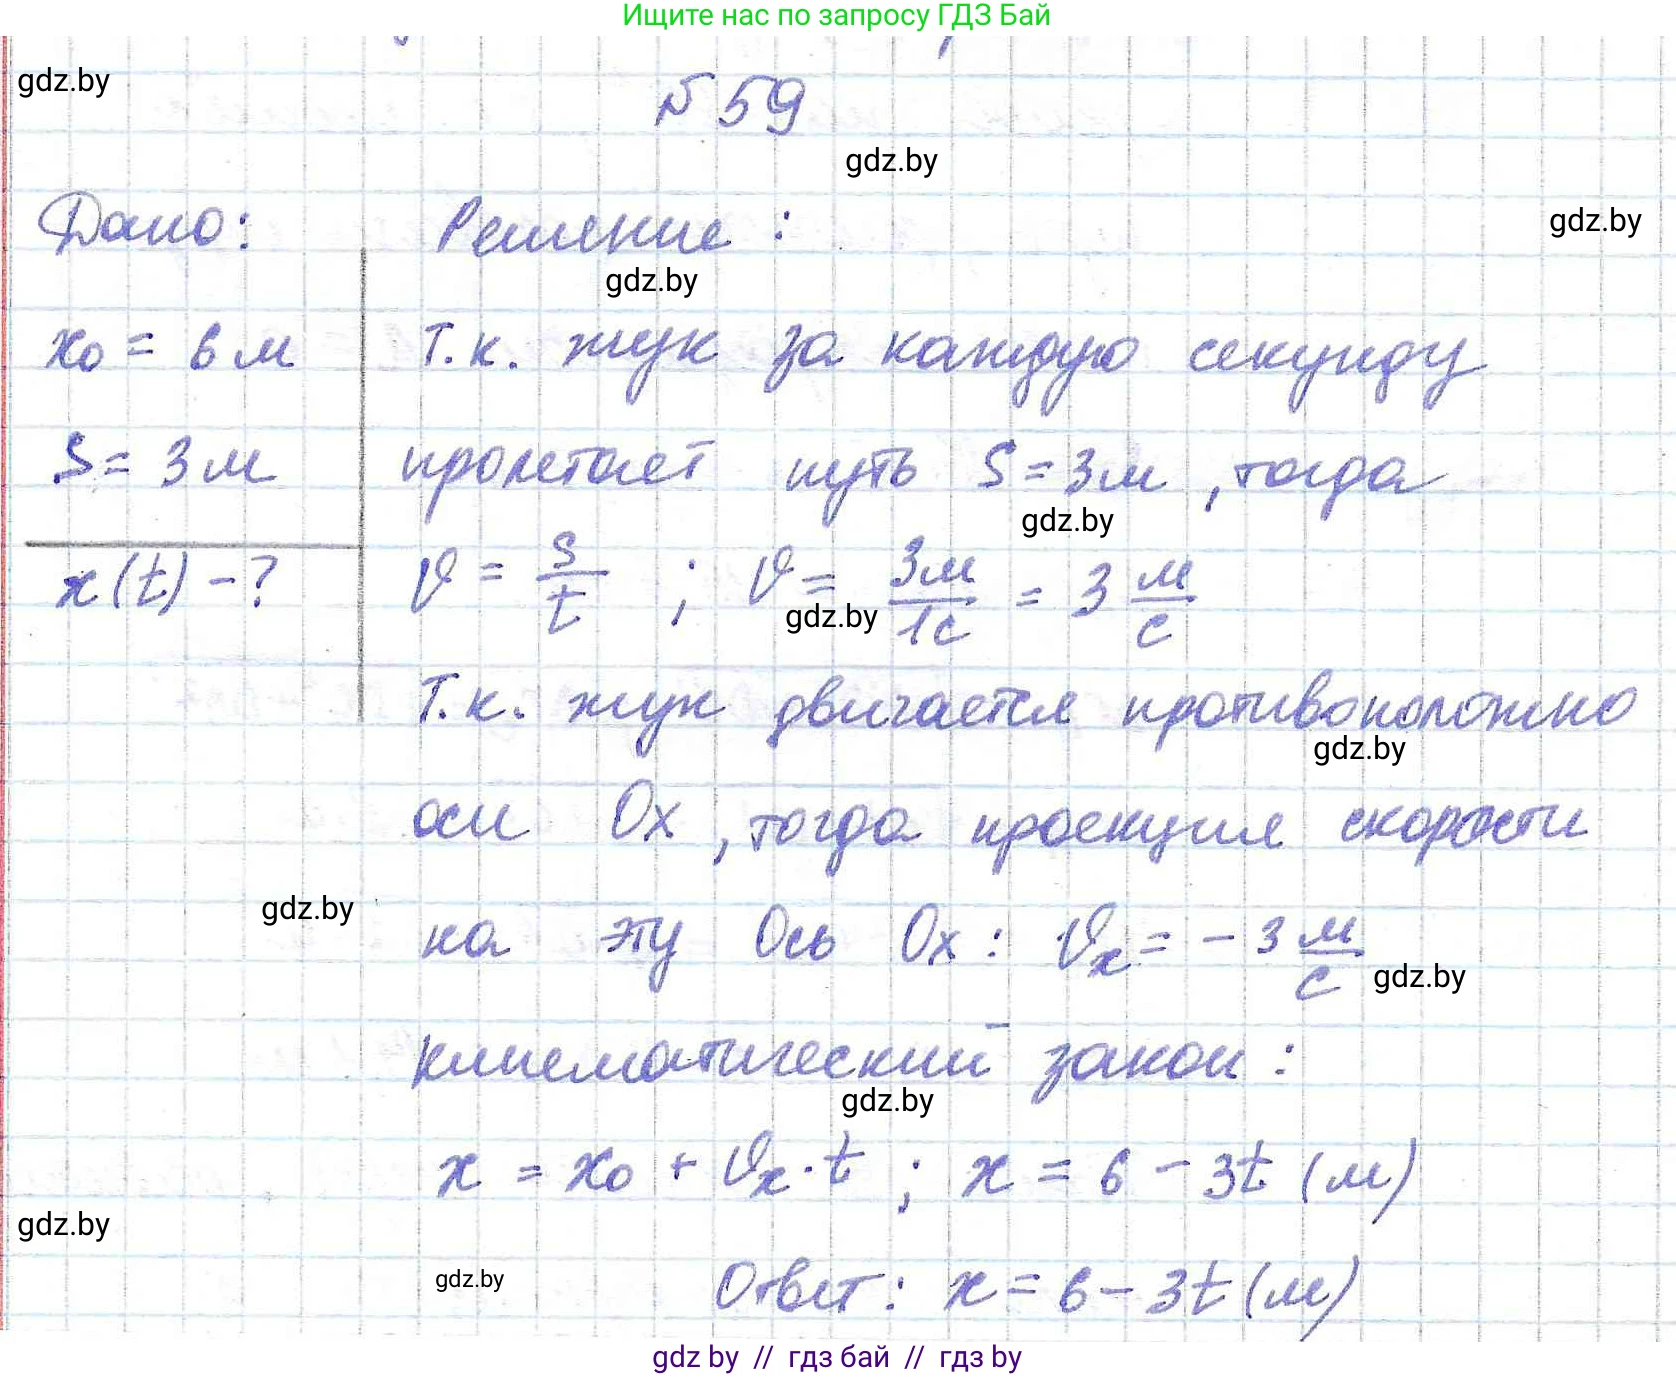 Ищите нас по запросу ГДЗ Бай
gdz.by
№ 59
gdz.by
Дано:
Решение:
gdz.by
gdz.by
x₀ = 6 м
т.к. жук за каждую секунду
S = 3 м
пролетает путь S = 3 м, тогда
gdz.by
x(t) - ?
υ = S/t ; υ = 3м/1с = 3 м/с
gdz.by
Т.к. жук двигается противоположно
gdz.by
оси Ox, тогда проекция скорости
gdz.by
на эту Ось Ox: υₓ = - 3 м/с
gdz.by
кинематический закон:
gdz.by
x = x₀ + υₓ · t ; x = 6 - 3t (м)
gdz.by
gdz.by
Ответ: x = 6 - 3t (м)
gdz by // гдз бай // гдз by